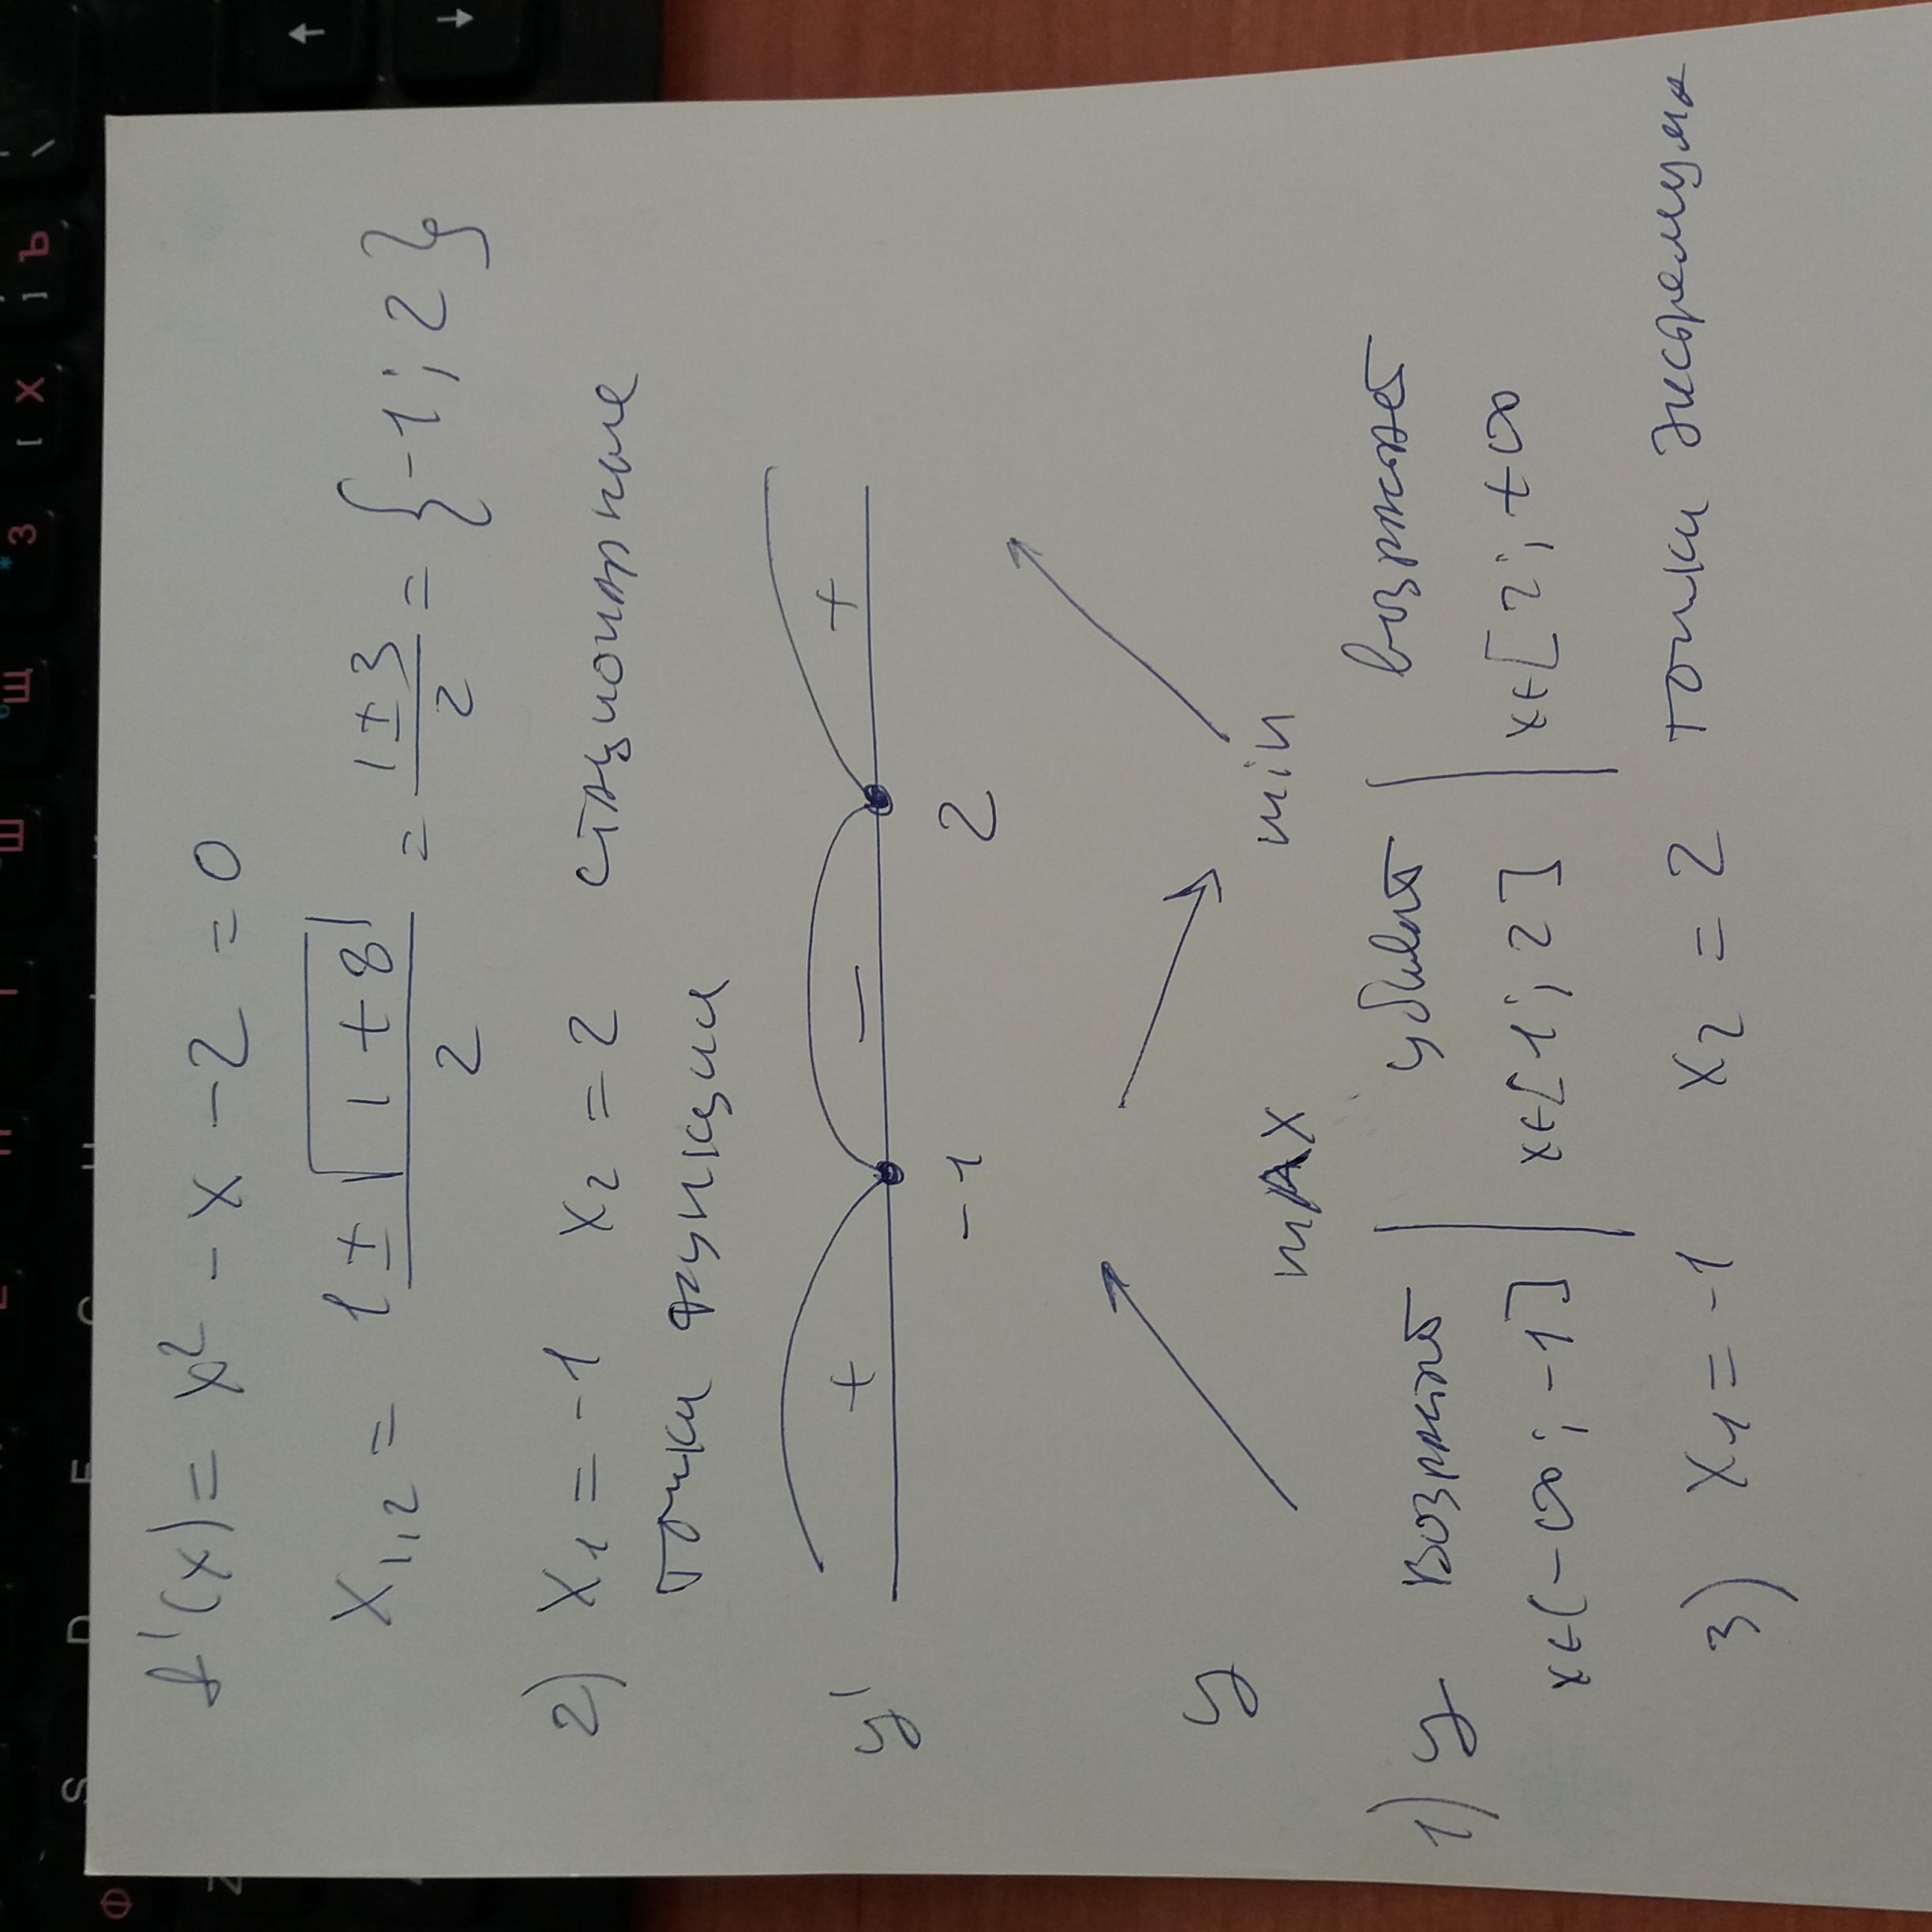 f'(x) = x² - x - 2 = 0
x₁,₂ = (1 ± √(1 + 8))/2 = (1 ± 3)/2 = {-1; 2}
2) x₁ = -1 x₂ = 2 стационарные
точки функции
y' + - +
-1 2
y
max min
1) y возрастает | убывает | возрастает
x∈(-∞; -1] | x∈[1; 2] | x∈[2; +∞
3) x₁ = -1 x₂ = 2 точки экстремума